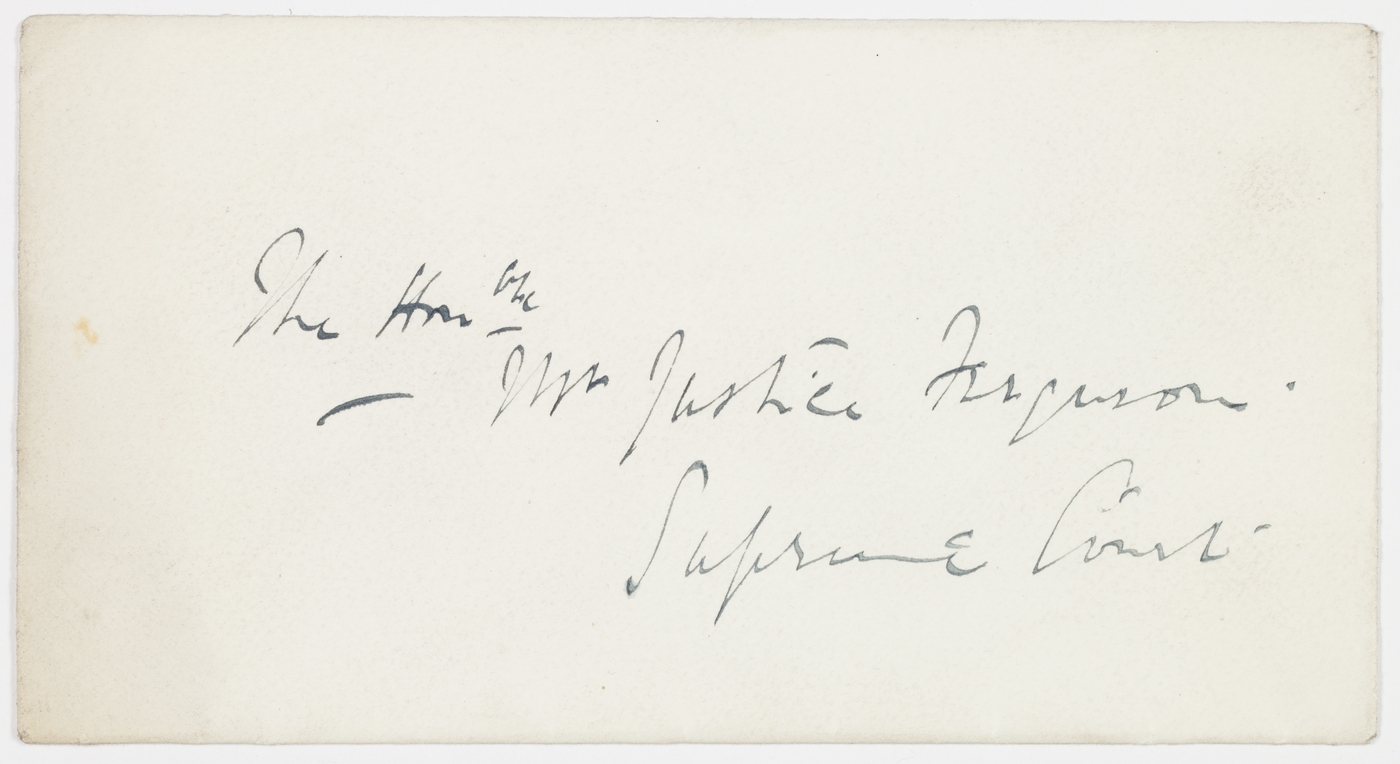 The Honble
Mr Justice Ferguson.
Supreme Court